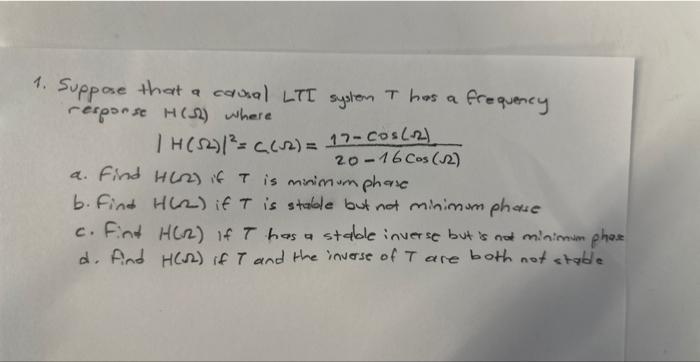 1. Suppose that a causal LTI system T has a frequency
response H(Ω) where
|H(Ω)|² = C(Ω) = 17-cos(Ω) / 20-16cos(Ω)
a. Find H(Ω) if T is minimum phase
b. Find H(Ω) if T is stable but not minimum phase
c. Find H(Ω) if T has a stable inverse but is not minimum phase
d. Find H(Ω) if T and the inverse of T are both not stable